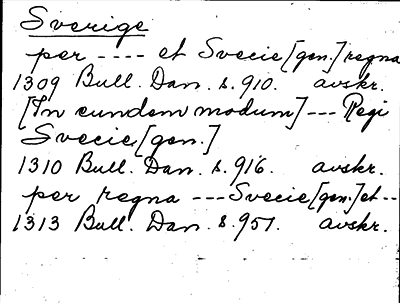 Sverige
per ---- et Svecie [gen.] regna
1309 Bull. Dan. s. 910. avskr.
[In eundem modum] --- Regi
Svecie [gen.]
1310 Bull. Dan. s. 916. avskr.
per regna --- Svecie [gen.] et --
1313 Bull. Dan. s. 951. avskr.